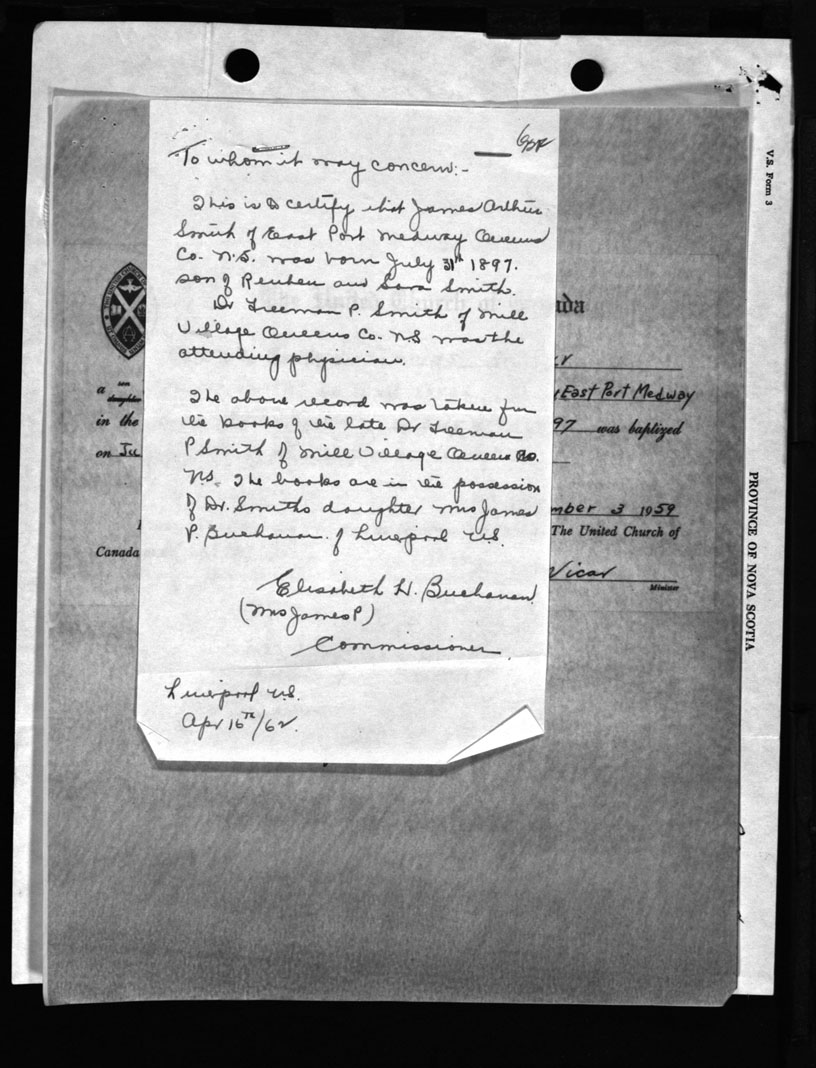 To whom it may concern:-
This is to certify that James Arthur
Smith of East Port Medway Queens
Co. N.S. was born July 31st 1897.
son of Reuben and Sara Smith.
Dr Freeman P. Smith of Mill
Village Queens Co. N.S was the
attending physician.
The above record was taken from
the books of the late Dr Freeman
P Smith of Mill Village Queens Co.
N.S. The books are in the possession
of Dr. Smiths daughter Mrs James
P. Buchanan of Liverpool N.S.
Elisabeth H. Buchanan
(Mrs James P)
Commissioner.
Liverpool N.S.
Apr 16th/62.
a son
daughter
East Port Medway
in the
97 was baptized
on Ju
mber 3 1959
The United Church of
Canada
Vicar
Minister
V.S. Form 3
PROVINCE OF NOVA SCOTIA